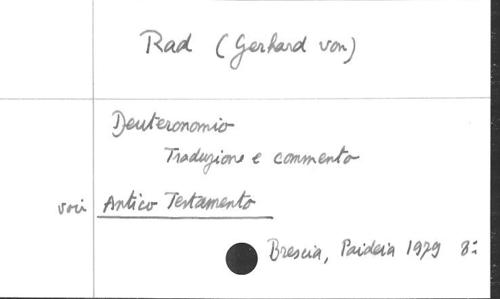 Rad (Gerhard von)
Deuteronomio
Traduzione e commento
Antico Testamento
Brescia, Paideia 1979 8º